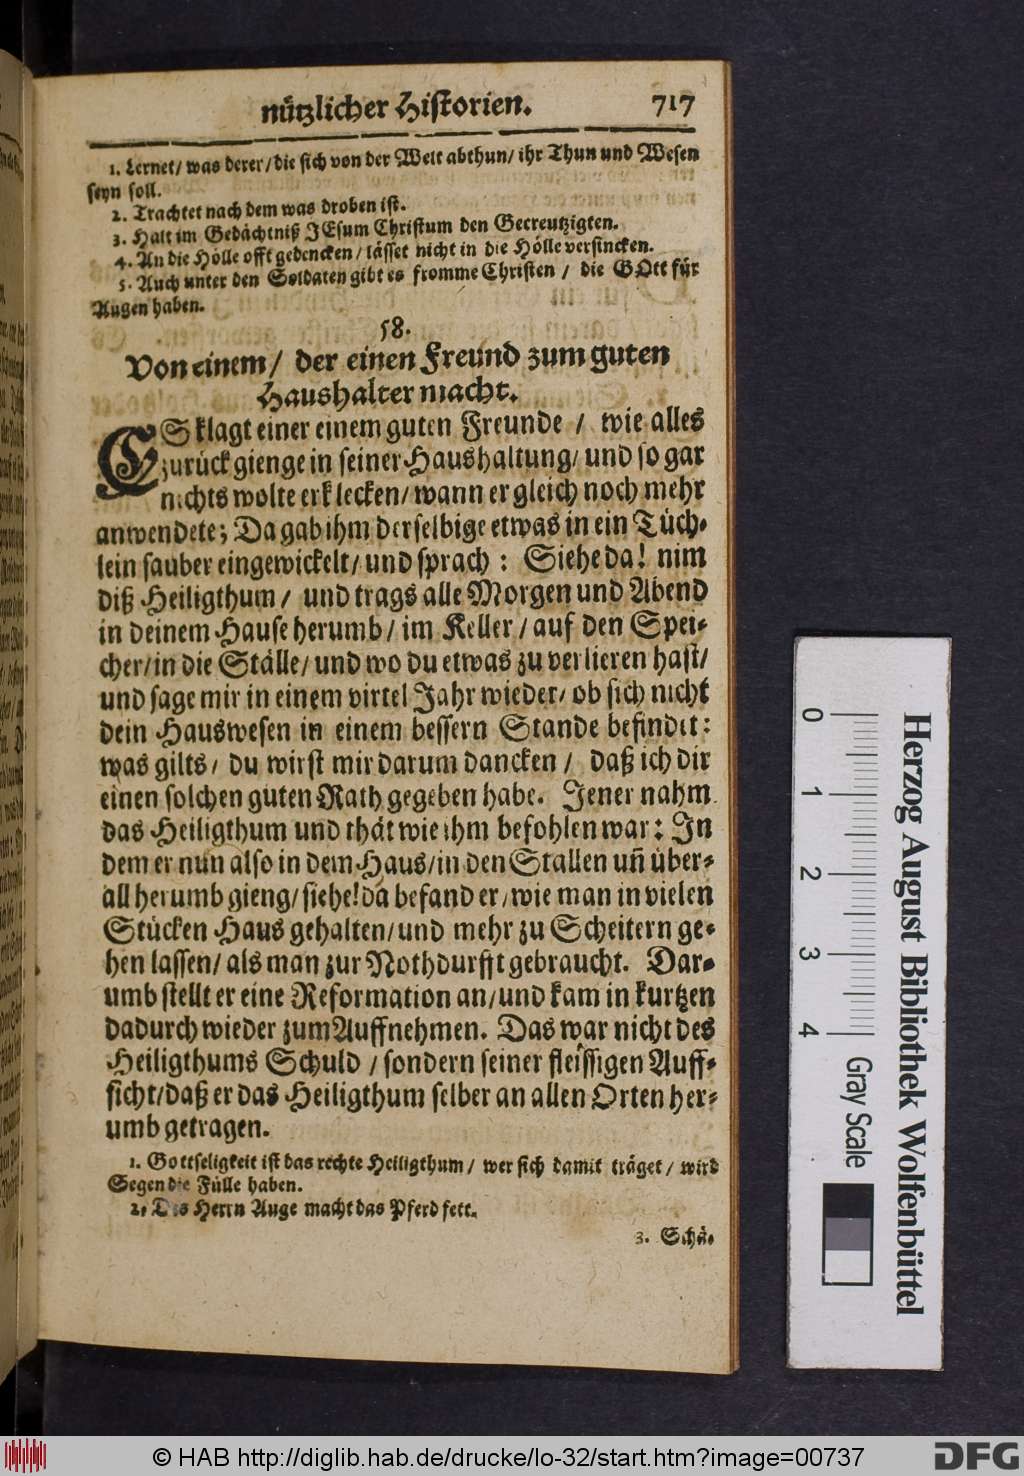 nützlicher Historien. 717
1. Lernet/ was derer/ die sich von der Welt abthun/ ihr Thun und Wesen
seyn soll.
2. Trachtet nach dem was droben ist.
3. Halt im Gedächtniß JEsum Christum den Gecreutzigten.
4. An die Hölle offt gedencken/ lässet nicht in die Hölle versincken.
5. Auch unter den Soldaten gibt es fromme Christen/ die GOtt für
Augen haben.
58.
Von einem/ der einen Freund zum guten
Haushalter macht.
ES klagt einer einem guten Freunde / wie alles
zurück gienge in seiner Haushaltung/ und so gar
nichts wolte erklecken/ wann er gleich noch mehr
anwendete; Da gab ihm derselbige etwas in ein Tüch-
lein sauber eingewickelt/ und sprach : Siehe da! nim
diß Heiligthum / und trags alle Morgen und Abend
in deinem Hause herumb/ im Keller/ auf den Spei-
cher/ in die Ställe/ und wo du etwas zu verlieren hast/
und sage mir in einem virtel Jahr wieder/ ob sich nicht
dein Hauswesen in einem bessern Stande befindet:
was gilts/ du wirst mir darum dancken / daß ich dir
einen solchen guten Rath gegeben habe. Jener nahm
das Heiligthum und thät wie ihm befohlen war: In
dem er nun also in dem Haus/ in den Stallen uñ über-
all herumb gieng/ siehe! da befand er/ wie man in vielen
Stücken Haus gehalten/ und mehr zu Scheitern ge-
hen lassen/ als man zur Nothdurfft gebraucht. Dar-
umb stellt er eine Reformation an/ und kam in kurtzen
dadurch wieder zum Auffnehmen. Das war nicht des
Heiligthums Schuld / sondern seiner fleissigen Auff-
sicht/ daß er das Heiligthum selber an allen Orten her-
umb getragen.
1. Gottseligkeit ist das rechte Heiligthum/ wer sich damit träget/ wird
Segen die Fülle haben.
2. Des Herrn Auge macht das Pferd fett.
3. Schä-
0 1 2 3 4
Gray Scale
Herzog August Bibliothek Wolfenbüttel
© HAB http://diglib.hab.de/drucke/lo-32/start.htm?image=00737
DFG